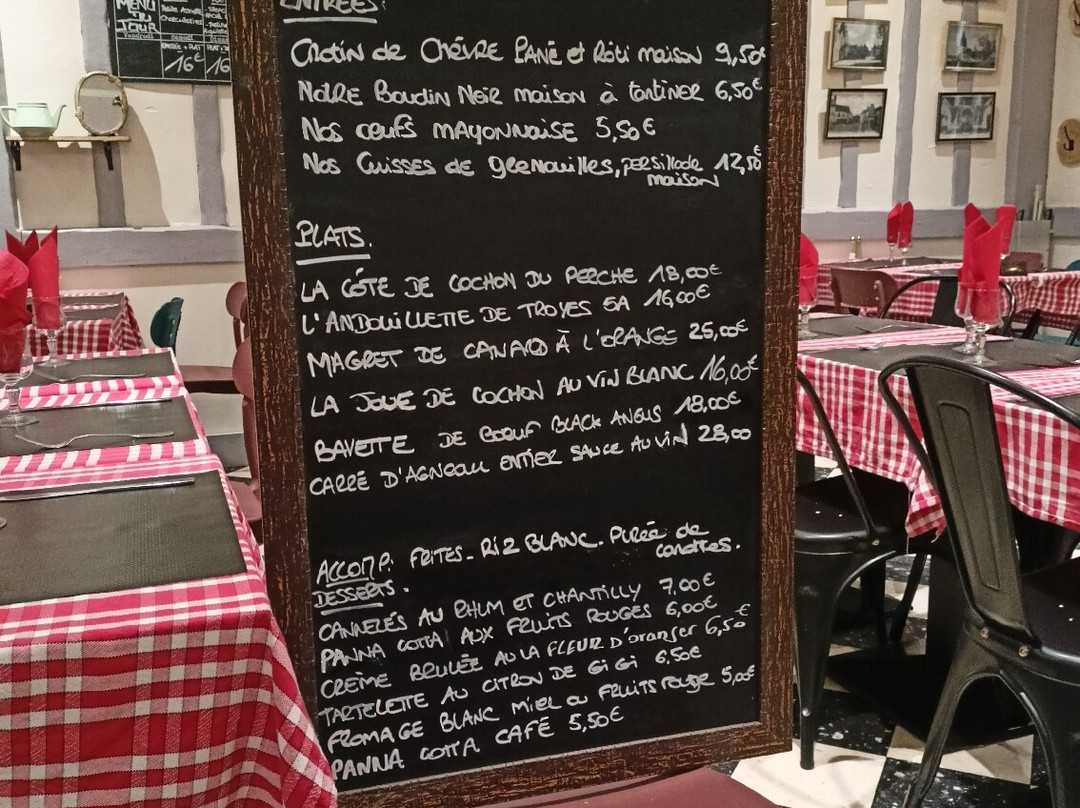 MENU
DU
JOUR
16€
16
ENTRÉES:
Crotin de CHÈVRE PANÉ et Rôti maison 9,50€
NOTRE Boudin Noir maison à tartiner 6,50€
Nos œufs MAYONNAISE 5,50€
Nos Cuisses de grenouilles, persillade 12,50€
maison
PLATS.
LA CÔTE DE COCHON DU PERCHE 18,00€
L'ANDOUILLETTE DE TROYES 5A 16,00€
MAGRET DE CANARD À L'ORANGE 25,00€
LA JOUE DE COCHON AU VIN BLANC 16,00€
BAVETTE DE BOEUF BLACK ANGUS 18,00€
CARRÉ D'AGNEAU ENTIER SAUCE AU VIN 28,00
ACCOMP: FRITES - RIZ BLANC - PURÉE de
carottes.
DESSERTS.
CANNELÉS AU RHUM ET CHANTILLY 7,00€
PANNA COTTA AUX FRUITS ROUGES 6,00€
CRÈME BRULÉE AU LA FLEUR D'oranger 6,50€
TARTELETTE AU CITRON DE GIGI 6,50€
FROMAGE BLANC MIEL ou FRUITS rouge 5,00€
PANNA COTTA CAFÉ 5,50€